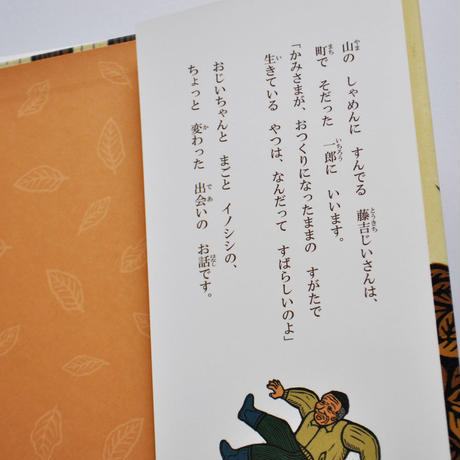 山の しゃめんに すんでる 藤吉じいさんは、
町で そだった 一郎に いいます。
「かみさまが、おつくりになったままの すがたで
生きている やつは、なんだって すばらしいのよ」
おじいちゃんと まごと イノシシの、
ちょっと 変わった 出会いの お話です。